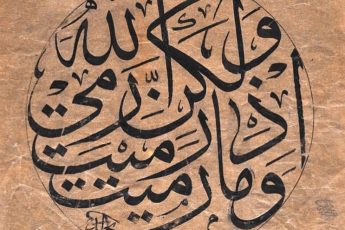 وما رميت
اذ رميت
ولكن الله رمى